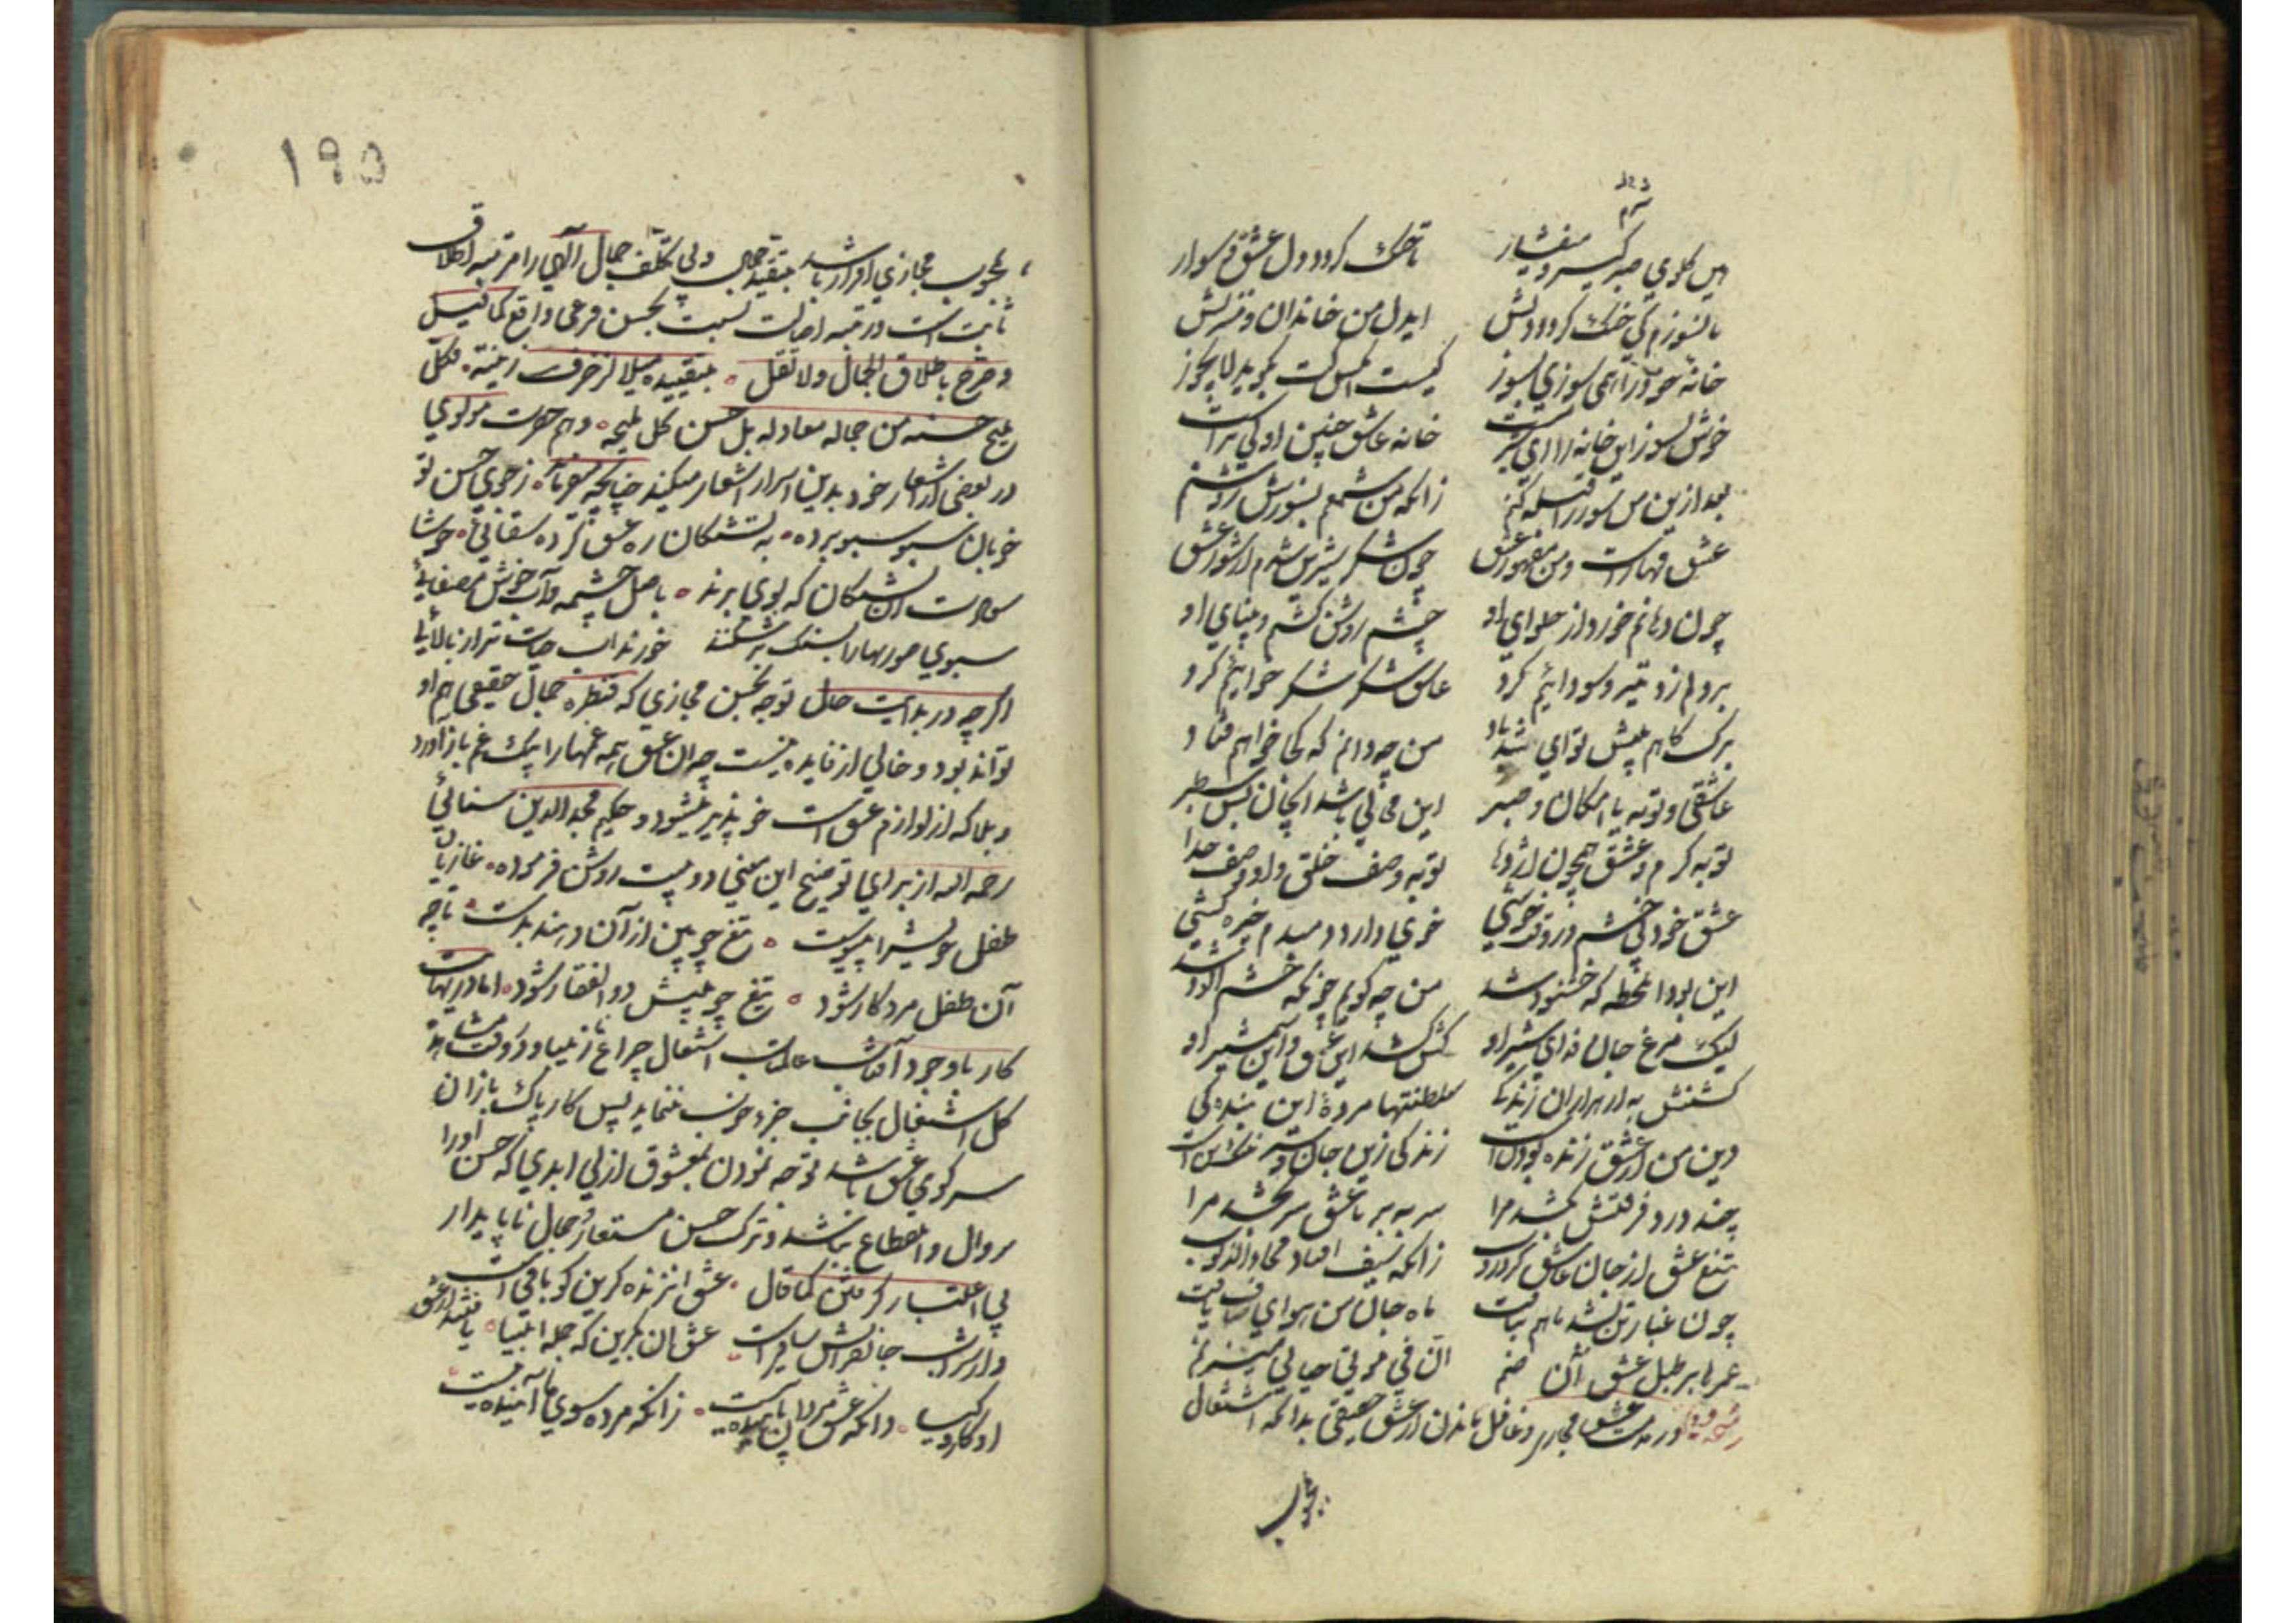 هین گلوی صبر گیر و میفشار تا خنک گردد دل عشق ای سوار
تا نسوزم کی خنک گردد دلش ای دل من خاندان و منزلش
خانهٔ خود را همی سوزی بسوز کیست آنکس کت بگوید لا یجوز
خوش بسوز این خانه را ای شیر مست خانه عاشق چنین اولی ترست
بعد ازین من سوز را قبله کنم زانکه من شمعم بسوزش روشنم
عشق قهارست و من مقهور عشق چون شکر شیرین شدم از شور عشق
چون دهانم خورد از حلوای او چشم روشن گشتم و بینای او
عاشق شکر شکر خوایم کرد
برگ کاهم پیش تو ای تندباد من چه دانم که کجا خواهم فتاد
عاشقی و توبه یا امکان صبر این محالی باشد ای جان بس سطبر
توبه کرم و عشق همچون اژدها توبه وصف خلق و او وصف خدا
عشق خود بی خشم در وقت خوشی خوی دارد دمبدم خیره کشی
این بود آن لحظه که خشنود شد من چه گویم چونکه خشم آلود شد
لیک مرغ جان فدای شیر او کش کشد این عشق و این شمشیر او
کشتنش به از هزاران زندگی سلطنتها مردهٔ این بندگی
دین من از عشق زنده بودنست زندگی زین جان و سر ننگ منست
چند درد فرقتش کشد مرا سر ببر تا عشق سر بخشد مرا
تیغ عشق از جان عاشق گردروب زانکه سیف افتاد محاء الذنوب
چون غبار تن بشد ماهم بتافت ماه جان من هوای صاف یافت
عمرها بر طبل عشق ای صنم ان فی موتی حیاتی میزنم
در مذمت عشق مجازی و غافل ماندن از عشق حقیقی بدانکه اشتغال
بمحبوب
۱۹۵
بمحبوب مجازی اثر را باشد بتقید جمال ولی تکلف جمال الهی را مرتبه اطلاق
ثابت است و در تبه اصالت نسبت بحسن فرعی واقع کما قیل
و صرح باطلاق الجمال ولا تقل بتقییده میلا لزخرف زینة فکل
ملیح حسنه من جماله معار له بل حسن کل ملیحة و هم حضرت مولوی
در بعضی از اشعار خود بدین اسرار اشعار میکند چنانکه میفرماید ز جوی حسن تو
خوبان سبو سبو برده به تشنگان ره عشق کرده سقایی خوشا
سعادت آن تشنگان که بوی برند به اصل چشمه آب خوش مصفایی
سبوی صورتها را بسنگ بر شکنند خورند آب حیات ترا ز بالایی
اگر چه در بدایت حال توجه بحسن مجازی که قنطره جمال حقیقی هم او
تواند بود و خالی از فایده نیست چه آن عشق همه غمها را بیک غم باز آورد
و بلا که از لوازم عشق است خو پذیر میشود و حکیم مجدالدین سنائی
رحمه الله از برای توضیح این معنی دو بیت روشن فرموده غازیان
طفل خویش را پیوست تیغ چوبین از آن دهند بدست تا چو
آن طفل مرد کار شود تیغ چوبینش ذوالفقار شود اما در نهایت
کار با وجود آفتاب عالمتاب اشتعال چراغ زیبا و در وقت مشاهده
کل اشتغال بجانب جزو خوب ننماید پس کار پاک بازان
سر کوی عشق باشد توجه نمودن بمعشوق ازلی ابدی که حسن او را
زوال و انقطاع نباشد و ترک حسن مستعار و جمال ناپایدار
بی اعتبار گرفتن کما قال عشق آن زنده گزین کو باقی است
و از شراب جانفزایت ساقی است عشق آن بگزین که جمله انبیا یافتند از عشق
او کار و کیا زانکه عشق مردگان پاینده نیست زانکه مرده سوی ما آینده نیست